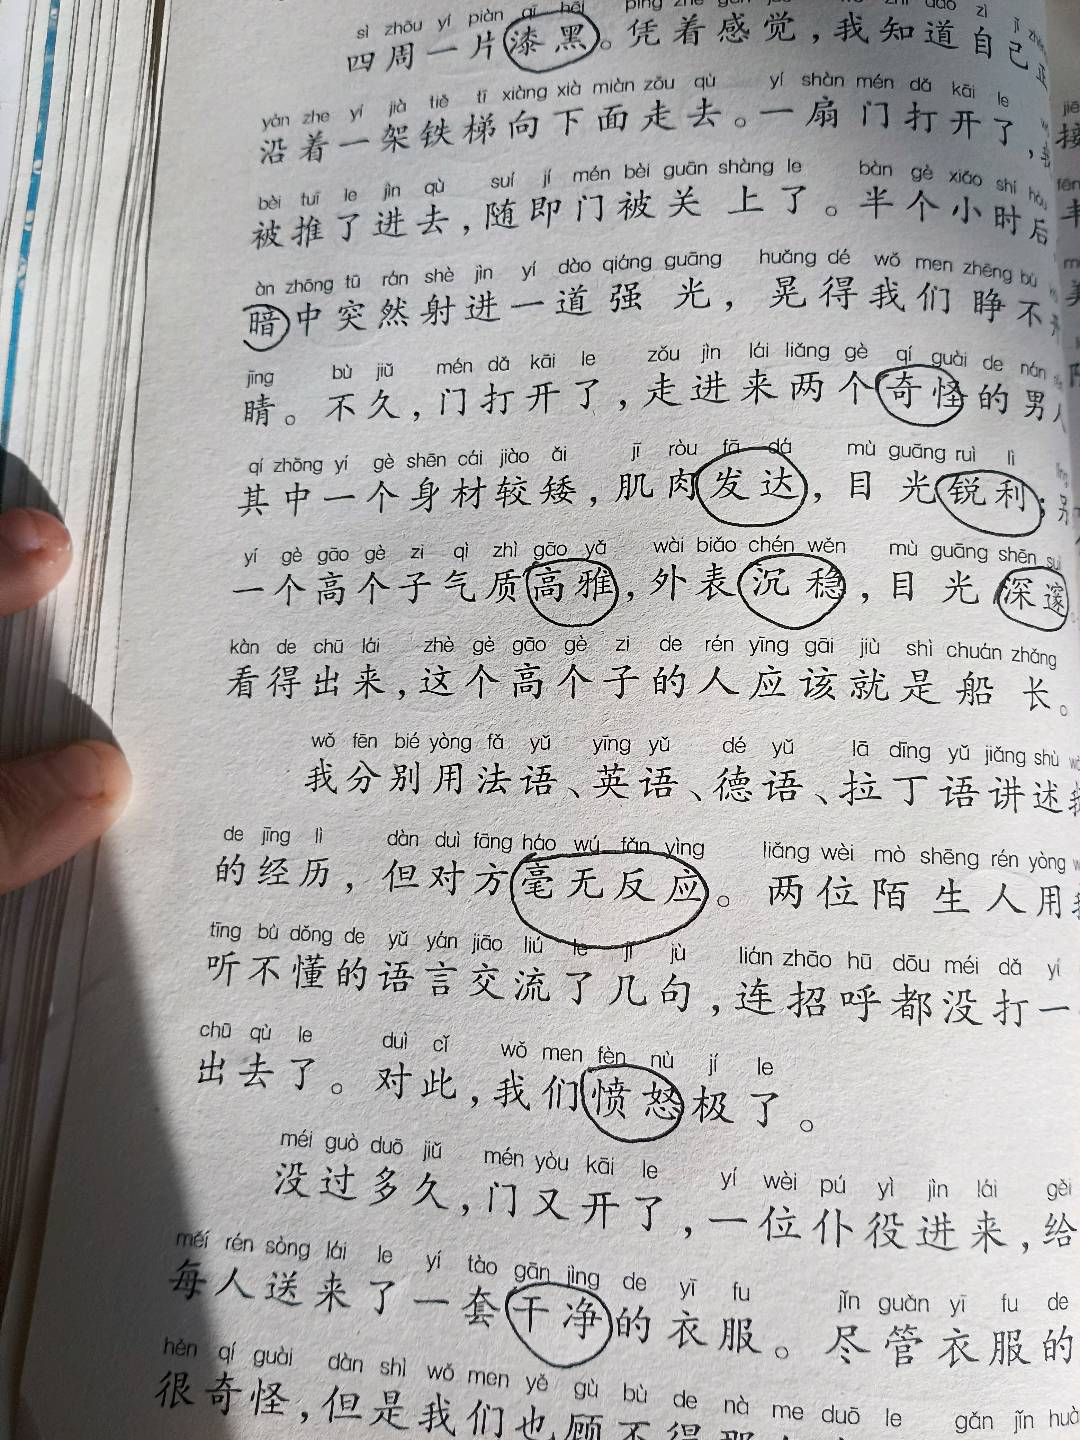 sì zhōu yí piàn qī hēi
四周一片漆黑。凭着感觉，我知道自己正
yán zhe yí jià tiě tī xiàng xià miàn zǒu qù yí shàn mén dǎ kāi le
沿着一架铁梯向下面走去。一扇门打开了，
bèi tuī le jìn qù suí jí mén bèi guān shàng le bàn gè xiǎo shí hòu
被推了进去，随即门被关上了。半个小时后
àn zhōng tū rán shè jìn yí dào qiáng guāng huǎng dé wǒ men zhēng bù
暗中突然射进一道强光，晃得我们睁不开
jīng bù jiǔ mén dǎ kāi le zǒu jìn lái liǎng gè qí guài de nán
睛。不久，门打开了，走进来两个奇怪的男人
qí zhōng yí gè shēn cái jiào ǎi jī ròu fā dá mù guāng ruì lì
其中一个身材较矮，肌肉发达，目光锐利；另
yí gè gāo gè zi qì zhì gāo yǎ wài biǎo chén wěn mù guāng shēn suì
一个高个子气质高雅，外表沉稳，目光深邃
kàn de chū lái zhè gè gāo gè zi de rén yīng gāi jiù shì chuán zhǎng
看得出来，这个高个子的人应该就是船长。
wǒ fēn bié yòng fǎ yǔ yīng yǔ dé yǔ lā dīng yǔ jiǎng shù
我分别用法语、英语、德语、拉丁语讲述我
de jīng lì dàn duì fāng háo wú fǎn yìng liǎng wèi mò shēng rén yòng
的经历，但对方毫无反应。两位陌生人用我
tīng bù dǒng de yǔ yán jiāo liú le jǐ jù lián zhāo hū dōu méi dǎ yí
听不懂的语言交流了几句，连招呼都没打一
chū qù le duì cǐ wǒ men fèn nù jí le
出去了。对此，我们愤怒极了。
méi guò duō jiǔ mén yòu kāi le yí wèi pú yì jìn lái gèi
没过多久，门又开了，一位仆役进来，给
měi rén sòng lái le yí tào gān jìng de yī fu jǐn guǎn yī fu de
每人送来了一套干净的衣服。尽管衣服的
hěn qí guài dàn shì wǒ men yě gù bù de nà me duō le gǎn jǐn huàn
很奇怪，但是我们也顾不得那